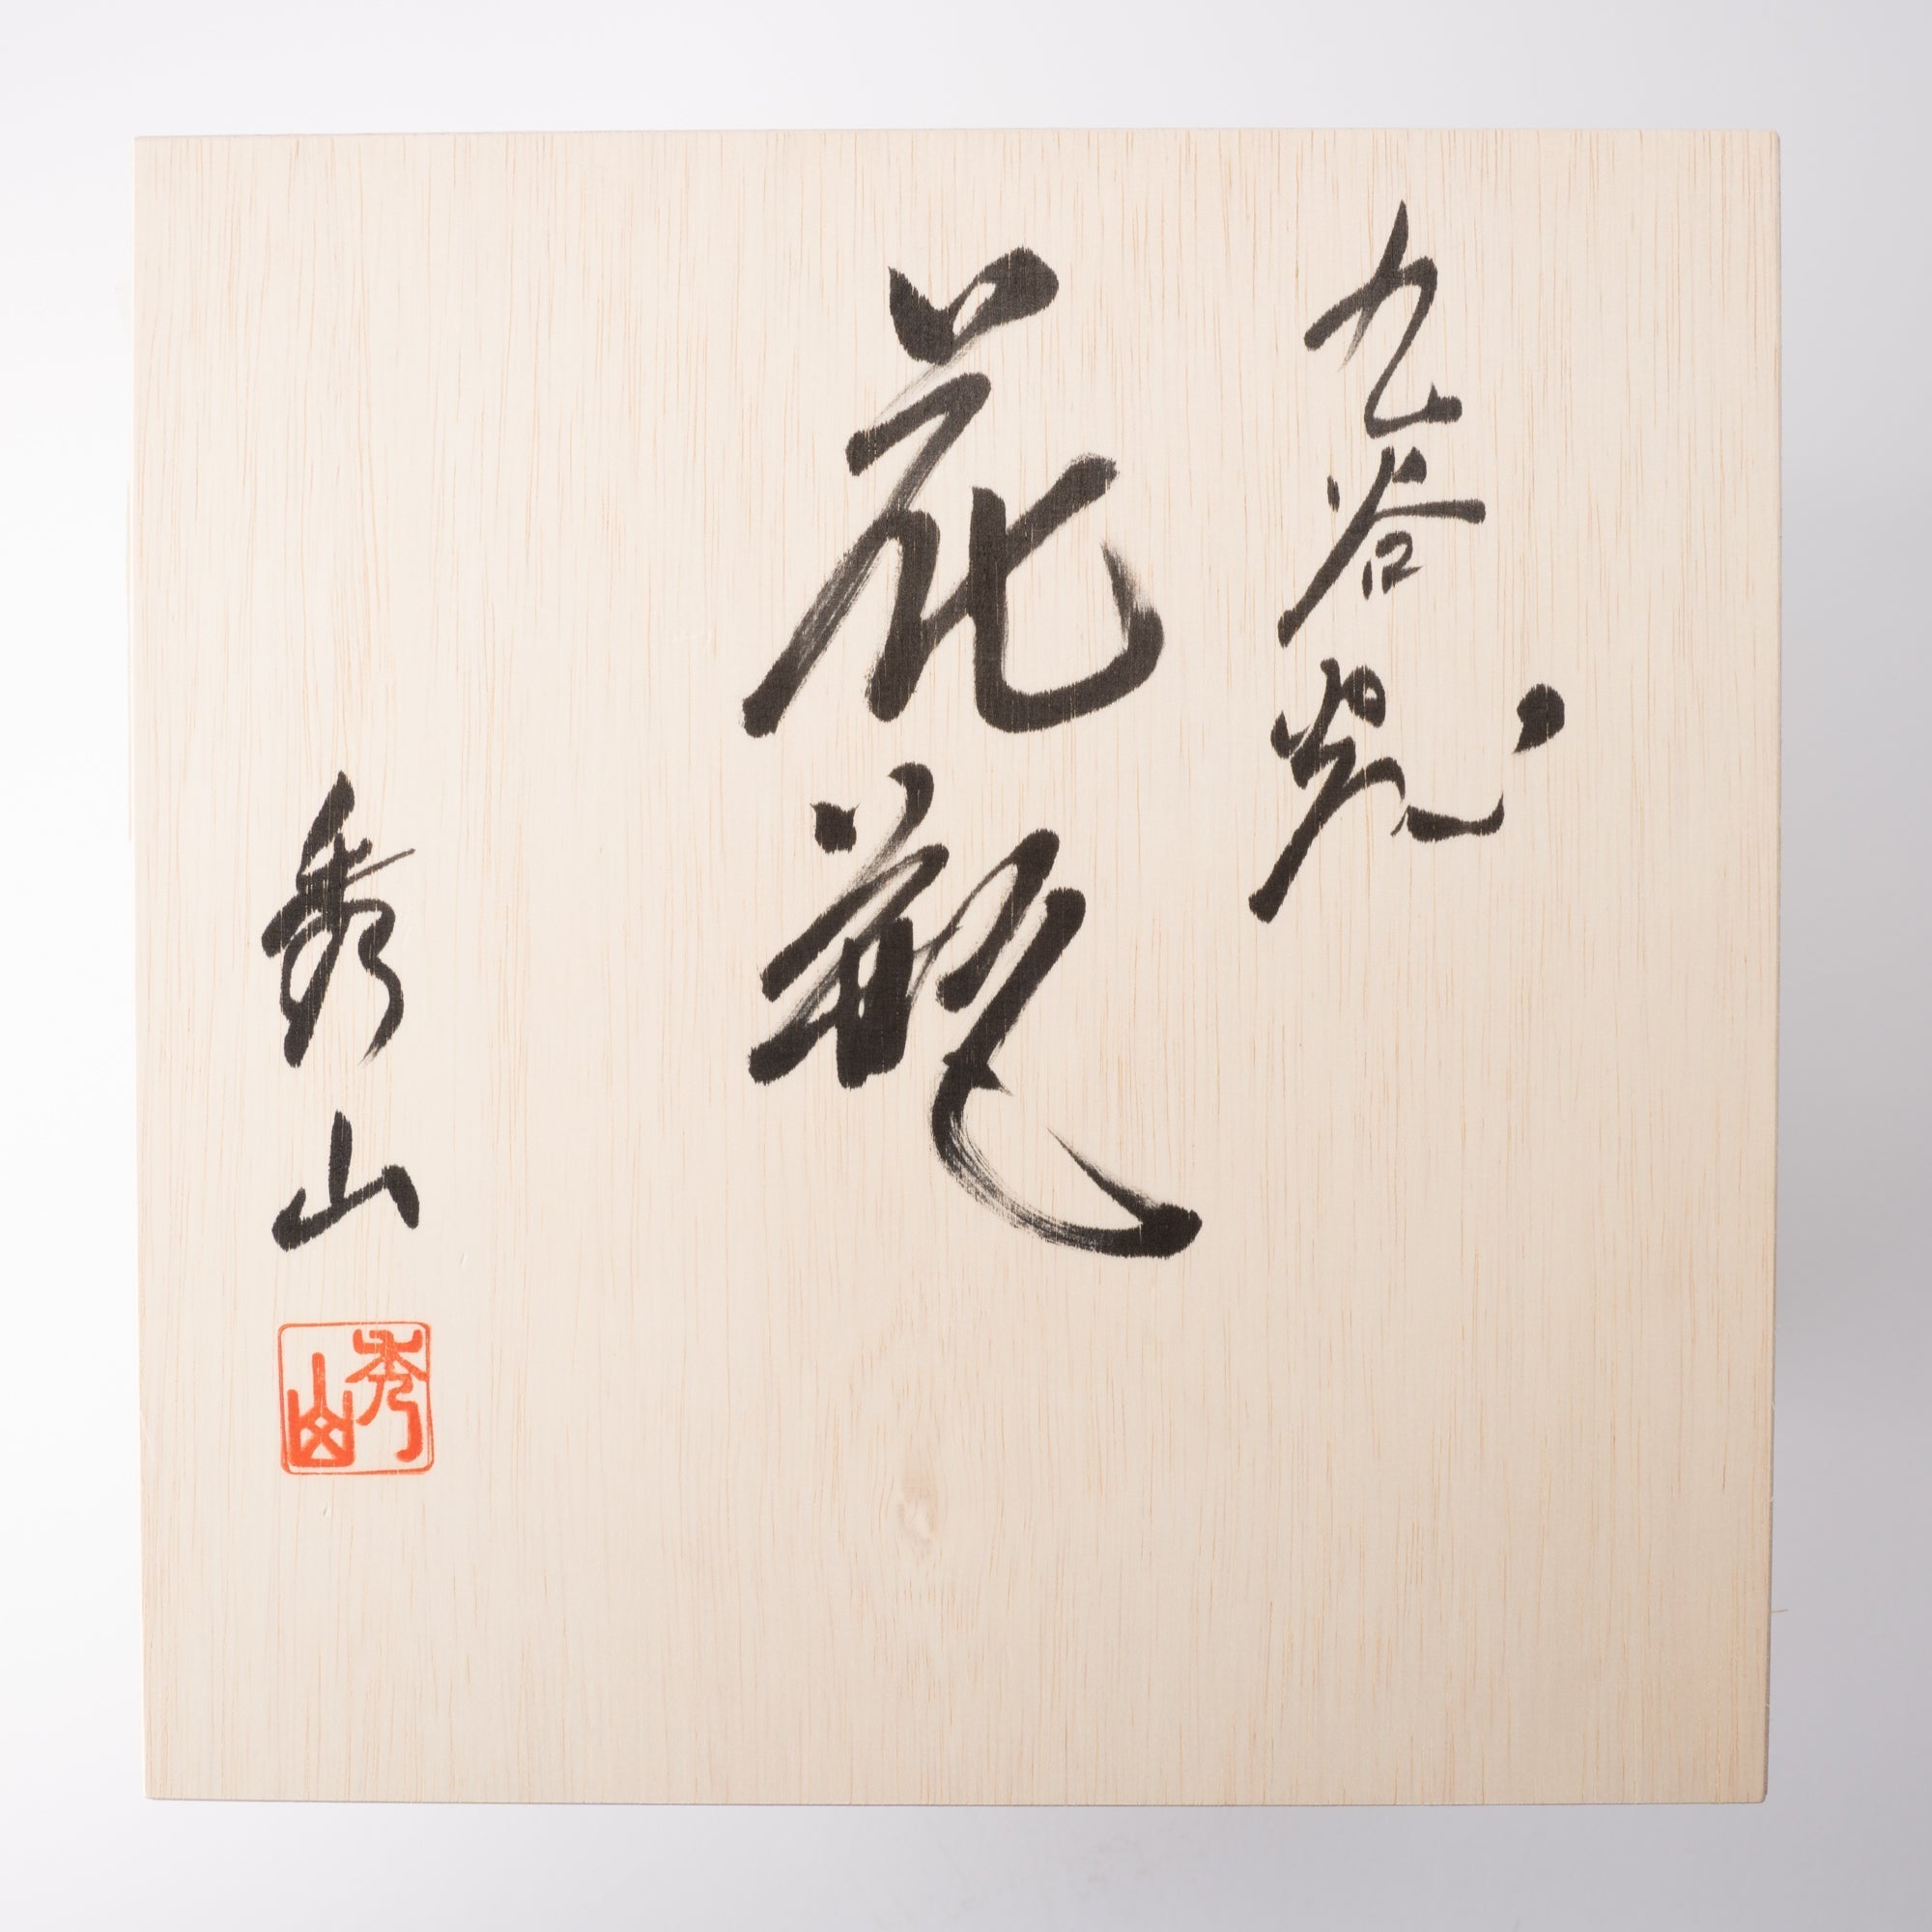 九谷焼
花瓶
秀山
秀山